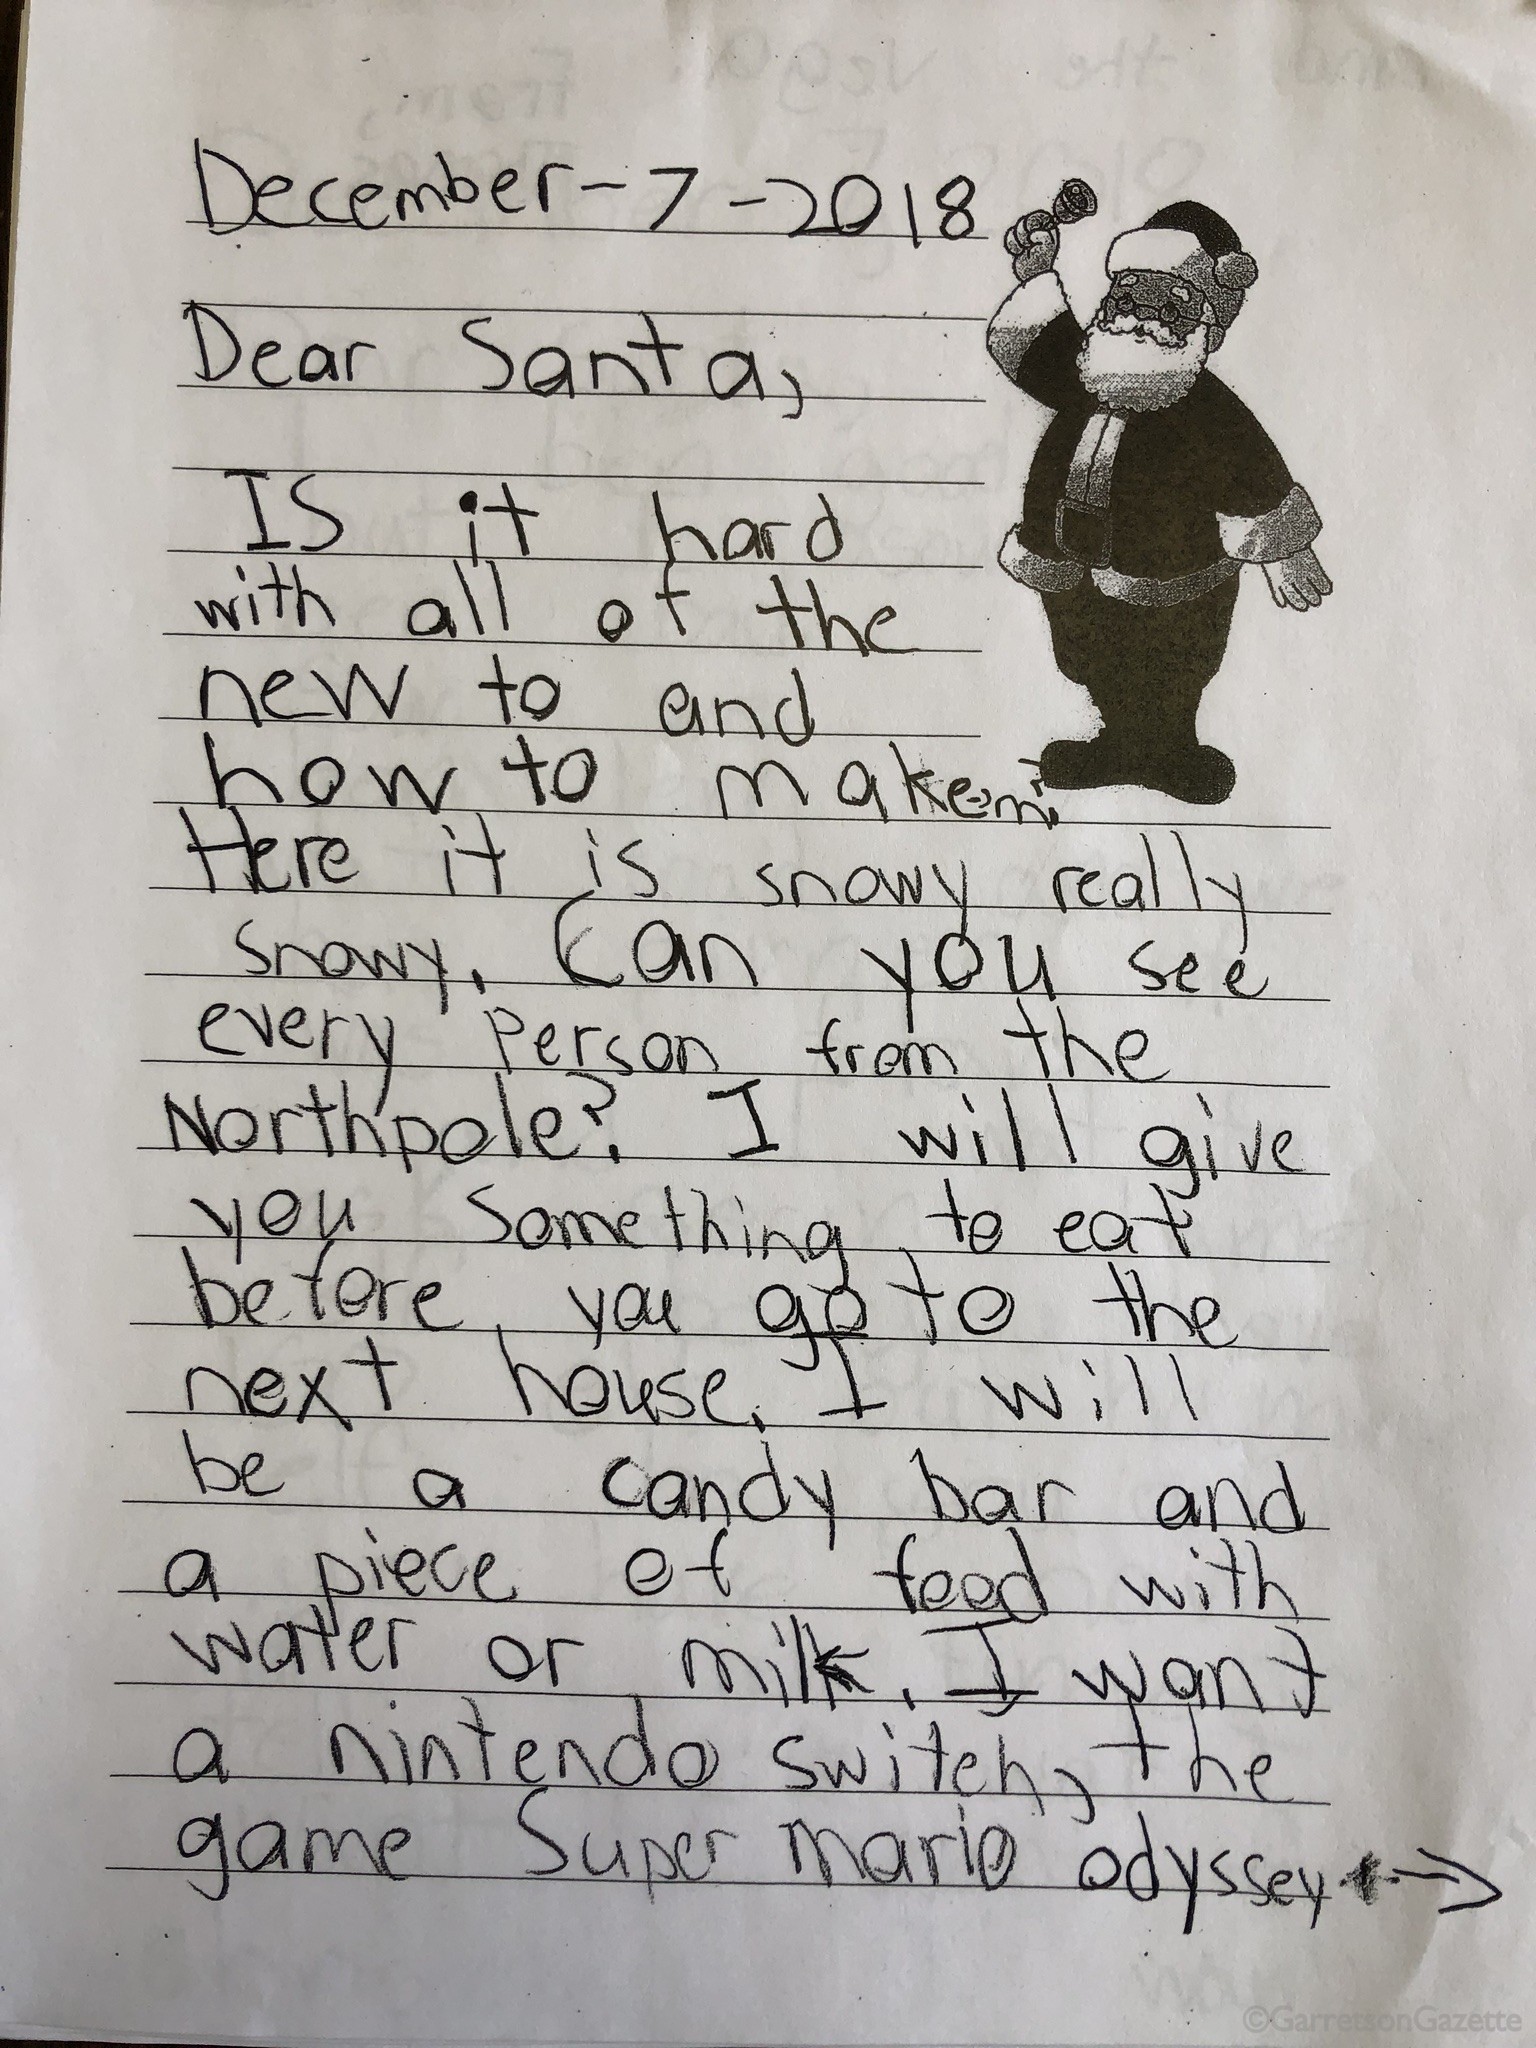 December-7-2018
Dear Santa,
IS it hard
with all of the
new to and
how to makem?
Here it is snowy really
snowy. Can you see
every Person from the
Northpole? I will give
you something to eat
before you go to the
next house. I will
be a candy bar and
a piece of food with
water or milk. I want
a nintendo switch, the
game Super mario odyssey
©GarretsonGazette